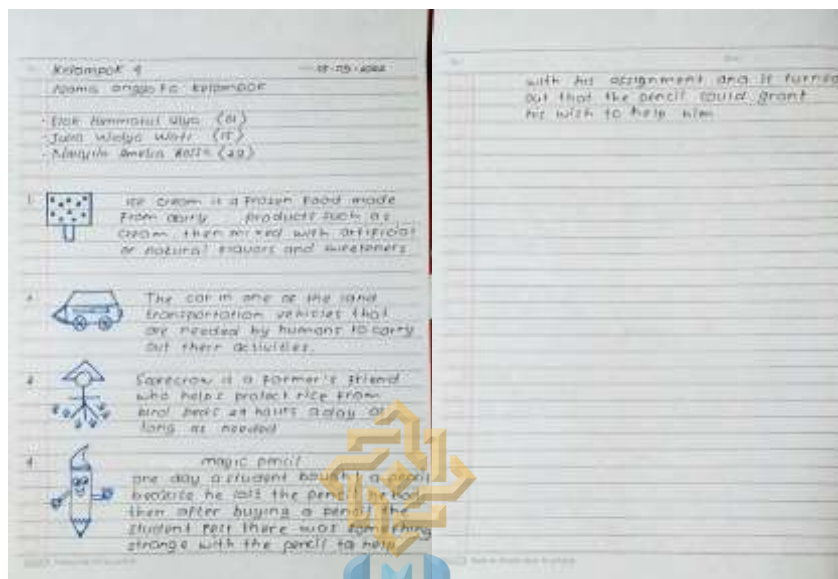 Kelompok 4
Nama anggota kelompok
(01)
(15)
Amelia (29)
1. Ice cream is a frozen food made
from dairy products such as
cream then mixed with artificial
or natural flavors and sweeteners
2. The car in one of the land
transportation vehicles that
are needed by humans to carry
out their activities.
3. Sarecrow is a farmer's friend
who helps protect rice from
bird pests 24 hours a day as
long as needed
4. magic pencil
one day a student bought a pencil
because he lost the pencil he had
then after buying a pencil the
student felt there was something
strange with the pencil to help
with his assignment and it turned
out that the pencil could grant
his wish to help him